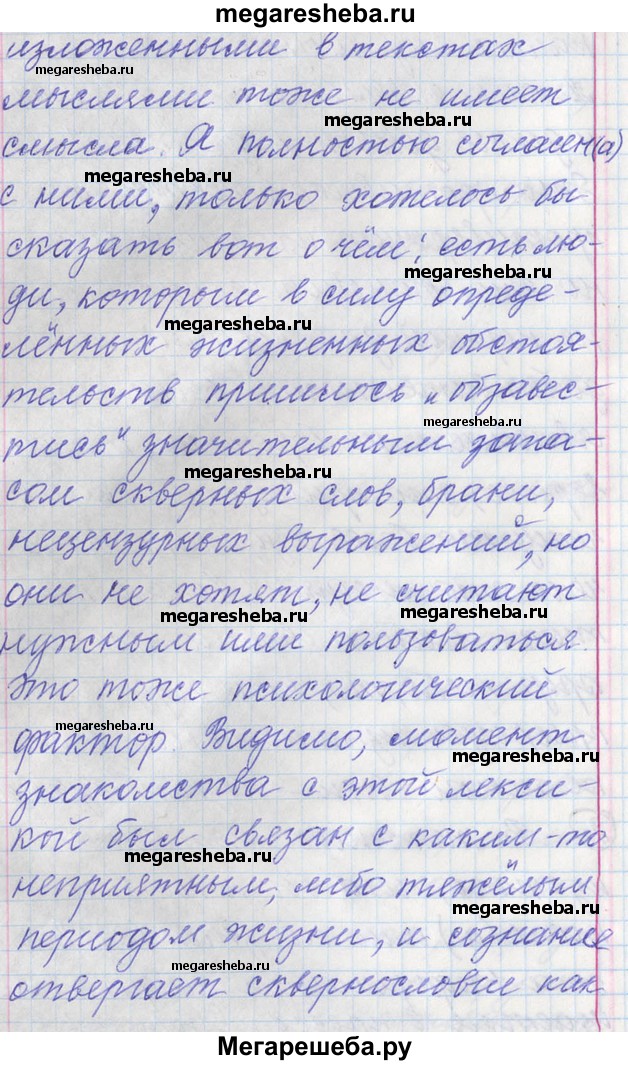 megaresheba.ru
изложенными в текстах
megaresheba.ru
мыслями тоже не имеет
megaresheba.ru
смысла. Я полностью согласен(а)
megaresheba.ru
с ними, только хотелось бы
сказать вот о чём: есть лю-
megaresheba.ru
ди, которым в силу опреде-
megaresheba.ru
лённых жизненных обстоя-
тельств пришлось „обзавес-
megaresheba.ru
тись“ значительным запа-
megaresheba.ru
сом скверных слов, брани,
нецензурных выражений, но
они не хотят, не считают
megaresheba.ru megaresheba.ru
нужным ими пользоваться.
Это тоже психологический
megaresheba.ru
фактор. Видимо, момент
megaresheba.ru
знакомства с этой лекси-
кой был связан с каким-то
megaresheba.ru
неприятным, либо тяжёлым
megaresheba.ru
периодом жизни, и сознание
megaresheba.ru
отвергает сквернословие как
Мегарешеба.ру